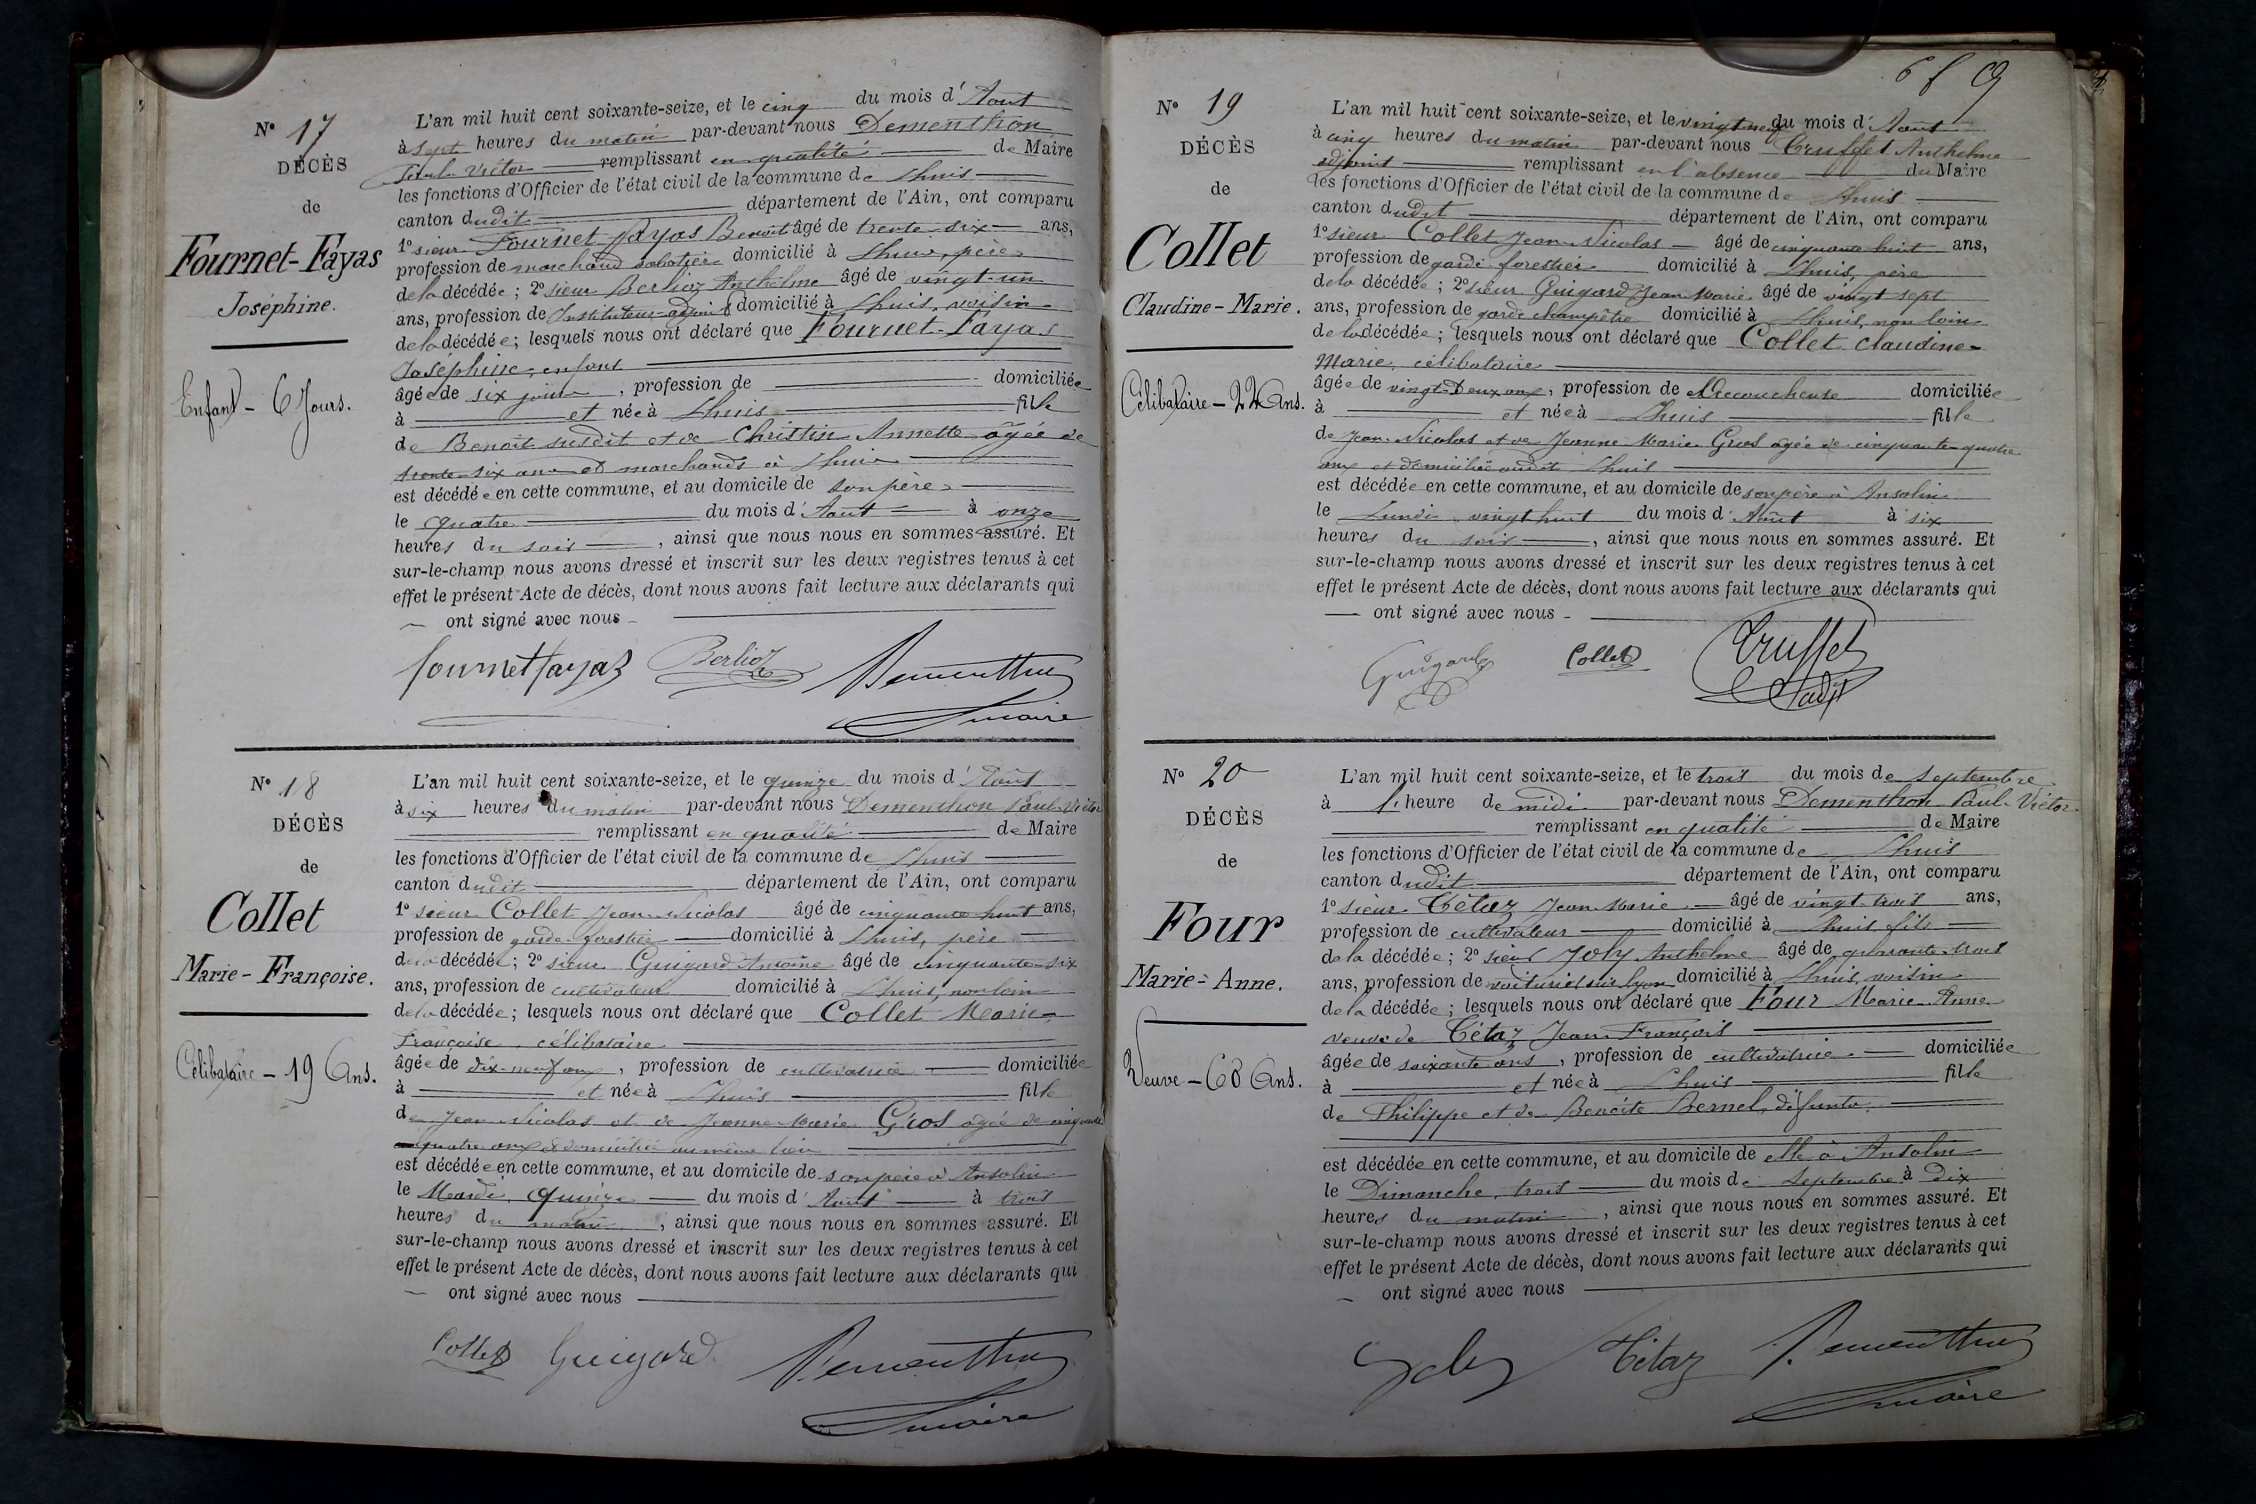 N° 17
DÉCÈS
de
Fournet-Fayas
Joséphine.
Enfant - 6 Jours.
L'an mil huit cent soixante-seize, et le cinq du mois d'Aout
à sept heures du matin par-devant nous Dementhon
Paul Victor remplissant en qualité de Maire
les fonctions d'Officier de l'état civil de la commune de Lhuis
canton dudit département de l'Ain, ont comparu
1° sieur Fournet-Fayas Benoit âgé de trente-six ans,
profession de marchand sabotier domicilié à Lhuis, père
de la décédée ; 2° sieur Berlioz Anthelme âgé de vingt un
ans, profession de Instituteur-adjoint domicilié à Lhuis, voisin
de la décédée ; lesquels nous ont déclaré que Fournet-Fayas
Joséphine, enfant
âgée de six jours , profession de domiciliée
à et née à Lhuis fille
de Benoit susdit et de Christin Annette âgée de
trente-six ans et marchands à Lhuis
est décédée en cette commune, et au domicile de son père
le quatre du mois d'Aout à onze
heures du soir , ainsi que nous nous en sommes assuré. Et
sur-le-champ nous avons dressé et inscrit sur les deux registres tenus à cet
effet le présent Acte de décès, dont nous avons fait lecture aux déclarants qui
— ont signé avec nous
fournet fayas Berlioz Dementhon
maire
N° 18
DÉCÈS
de
Collet
Marie - Françoise.
Célibataire - 19 Ans.
L'an mil huit cent soixante-seize, et le quinze du mois d'Aout
à six heures du matin par-devant nous Dementhon Paul Victor
remplissant en qualité de Maire
les fonctions d'Officier de l'état civil de la commune de Lhuis
canton dudit département de l'Ain, ont comparu
1° sieur Collet Jean Nicolas âgé de cinquante huit ans,
profession de garde forestier domicilié à Lhuis, père
de la décédée ; 2° sieur Guigard Antoine âgé de cinquante-six
ans, profession de cultivateur domicilié à Lhuis, non loin
de la décédée ; lesquels nous ont déclaré que Collet Marie-
Françoise, célibataire
âgée de dix-neuf ans , profession de cultivatrice domiciliée
à et née à Lhuis fille
de Jean Nicolas et de Jeanne Marie Gros agée de cinquante
quatre ans & domiciliée au même lieu
est décédée en cette commune, et au domicile de son père à Ansolin
le Mardi, quinze du mois d'Aout à trois
heures du matin , ainsi que nous nous en sommes assuré. Et
sur-le-champ nous avons dressé et inscrit sur les deux registres tenus à cet
effet le présent Acte de décès, dont nous avons fait lecture aux déclarants qui
— ont signé avec nous
Collet Guigard Dementhon
maire
N° 19
DÉCÈS
de
Collet
Claudine - Marie.
Célibataire - 22 Ans.
L'an mil huit cent soixante-seize, et le vingt neuf du mois d'Aout
à cinq heures du matin par-devant nous Truffet Anthelme
adjoint remplissant en l'absence du Maire
les fonctions d'Officier de l'état civil de la commune de Lhuis
canton dudit département de l'Ain, ont comparu
1° sieur Collet Jean Nicolas âgé de cinquante huit ans,
profession de garde forestier domicilié à Lhuis, père
de la décédée ; 2° sieur Guigard Jean Marie âgé de vingt sept
ans, profession de garde champêtre domicilié à Lhuis, non loin
de la décédée ; lesquels nous ont déclaré que Collet Claudine-
Marie, célibataire
âgée de vingt-Deux ans , profession de Accoucheuse domiciliée
à et née à Lhuis fille
de Jean Nicolas et de Jeanne Marie Gros agée de cinquante quatre
ans et domiciliée audit Lhuis
est décédée en cette commune, et au domicile de son père à Ansolin
le Lundi vingt huit du mois d'Aout à six
heures du soir , ainsi que nous nous en sommes assuré. Et
sur-le-champ nous avons dressé et inscrit sur les deux registres tenus à cet
effet le présent Acte de décès, dont nous avons fait lecture aux déclarants qui
— ont signé avec nous
Guigard Collet Truffet
adjt
N° 20
DÉCÈS
de
Four
Marie - Anne.
Veuve - 60 Ans.
L'an mil huit cent soixante-seize, et le trois du mois de septembre
à 1. heure de midi par-devant nous Dementhon Paul-Victor
remplissant en qualité de Maire
les fonctions d'Officier de l'état civil de la commune de Lhuis
canton dudit département de l'Ain, ont comparu
1° sieur Tétaz Jean Marie âgé de vingt trois ans,
profession de cultivateur domicilié à Lhuis fils
de la décédée ; 2° sieur Joly Anthelme âgé de quarante-trois
ans, profession de voiturier sur Lyon domicilié à Lhuis, voisin
de la décédée ; lesquels nous ont déclaré que Four Marie-Anne
veuve de Tétaz Jean François
âgée de soixante ans , profession de cultivatrice domiciliée
à et née à Lhuis fille
de Philippe et de Benoite Bernel, défunts
est décédée en cette commune, et au domicile de elle à Ansolin
le Dimanche, trois du mois de Septembre à dix
heures du matin , ainsi que nous nous en sommes assuré. Et
sur-le-champ nous avons dressé et inscrit sur les deux registres tenus à cet
effet le présent Acte de décès, dont nous avons fait lecture aux déclarants qui
— ont signé avec nous
Joly Tétaz Dementhon
maire